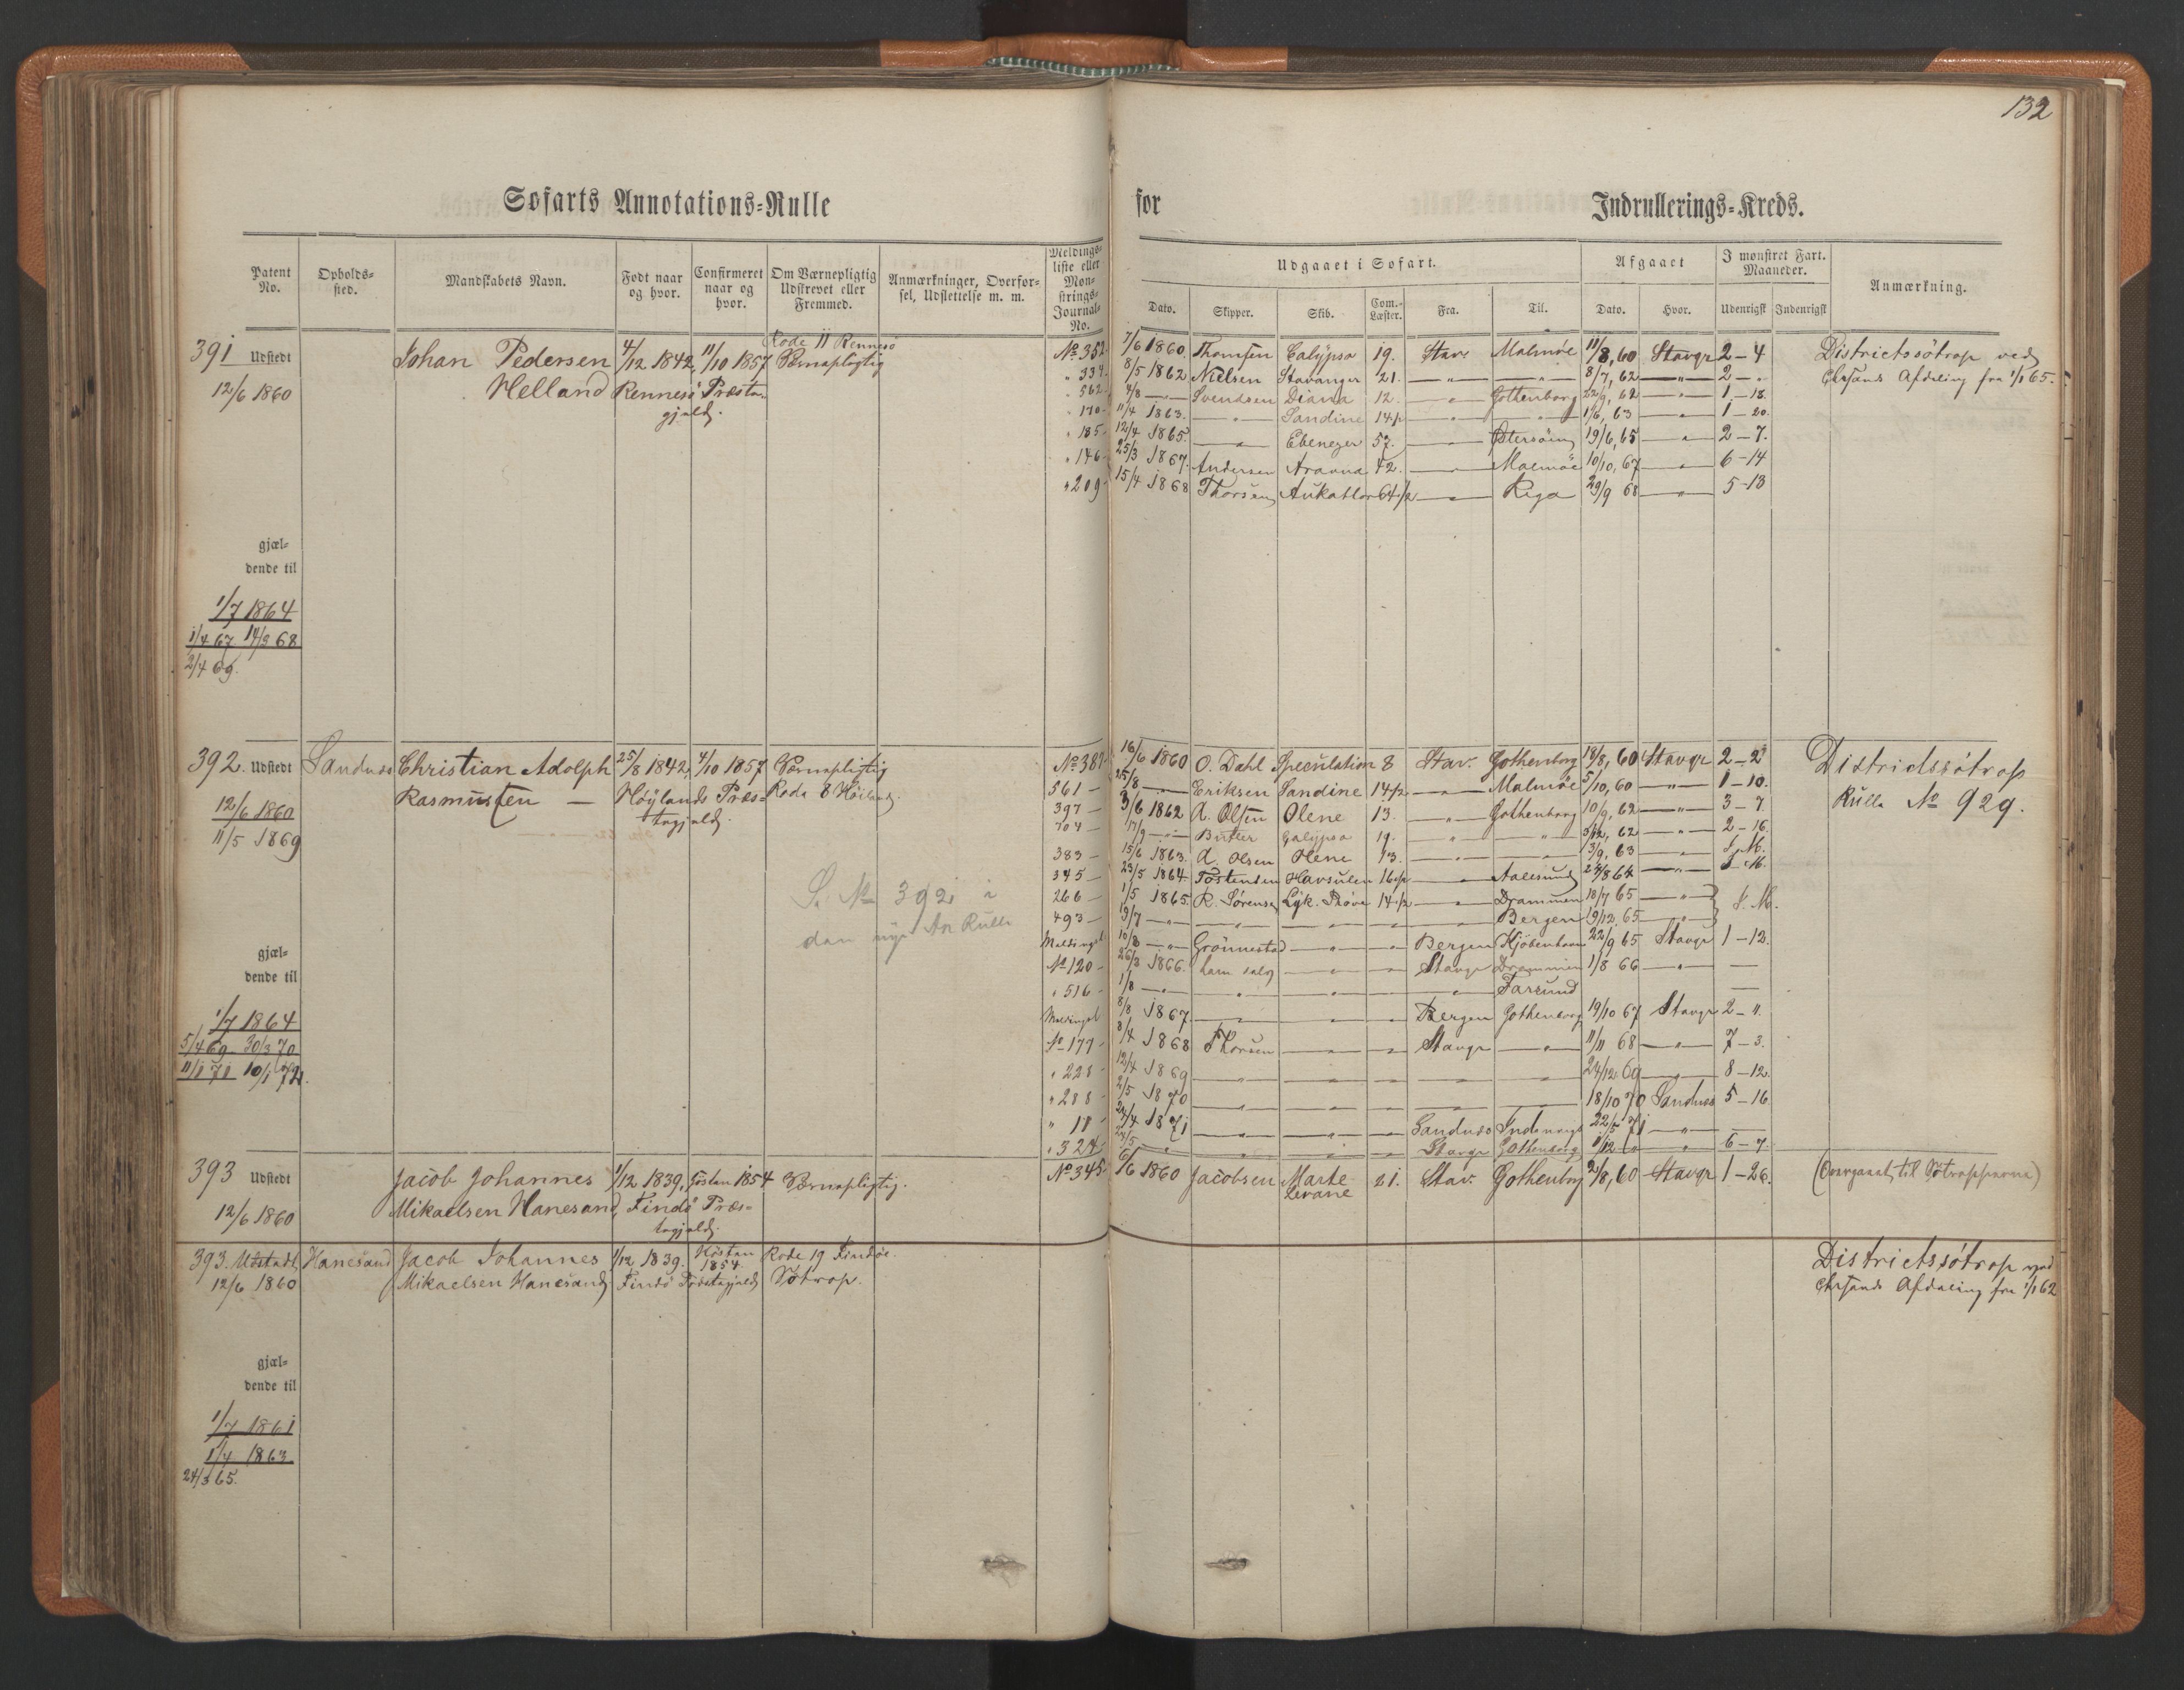 132
Søfarts Annotations-Rulle for Indrullerings-Kreds.
Patent No.
Opholds-sted.
Mandskabets Navn.
Født naar og hvor.
Confirmeret naar og hvor.
Om Værnepligtig Udskrevet eller Fremmed.
Anmærkninger, Overførsel, Udslettelse m. m.
Meldings-liste eller Mønstrings-Journal-No.
Udgaaet i Søfart.
Dato. Skipper. Skib. Com.-Læster. Fra. Til.
Afgaaet
Dato. Hvor.
I mønstret Fart. Maaneder.
Udenrigsk Indenrigsk
Anmærkning.
Rode 11 Rennesø
391 Udstedt Johan Pedersen 4/12 1842, 11/10 1857 Værnepligtig
12/6 1860 Helland Rennesø Præste-
gjæld.
No 352 7/6 1860. Thomsen Calypso 19. Stav. Malmøe 11/8, 60 Stavgr 2 – 4 Districtssøtrop ved
" 334 8/5 1862 Nielsen Stavanger 21. — " — — " — 8/7, 62 — " — 2 – " Chrsands Afdeling fra 1/1 65.
" 562 4/8 — — Svendsen Diana 12. — " — Gothenborg 22/9, 62 — " — 1 – 18.
" 170 11/4 1863. — " — Sandine 14½ — " — " 1/6, 63 — " — 1 – 20.
" 185 12/4 1865. — " — Ebenezer 57. — " — Østersøen 19/6, 65 — " — 2 – 7.
" 146 25/3 1867. Andersen 42. — " — Malmöe 10/10, 67 — " — 6 – 14
" 209 15/4 1868 Thorsen 64½ — " — Riga 29/9 68 — " — 5 – 13
gjæl-
dende til
1/7 1864
1/4 67. 14/3 68
2/4 69.
392. Udstedt Sandnæs Christian Adolph 25/8 1842, 4/10 1857 Værnepligtig
12/6 1860 Rasmussen — Höylands Præs- Rode 8 Höiland.
11/5 1869 tegjæld.
S. No 392 i
den nye An Rulle
No 387 16/6 1860 O. Dahl Speculation 8 Stav. Gothenborg 18/8, 60 Stavgr 2 – 2 Districtssøtrop
561 – 25/8 — " — Eriksen Sandine 14½ — " — Malmöe 5/10, 60 — " — 1 – 10. Rulle No 929.
397 – 3/6 1862 A. Olsen Olene 13. — " — Gothenborg 10/9, 62 — " — 3 – 7
704 – 17/9 — " — Butler Galypso 19. " — " — 3/12, 62 — " — 2 – 16.
383 – 15/6 1863. A. Olsen Olene 13. — " — — " — 3/9, 63 — " —
345 – 23/5 1864 Tostensen Havsulen 16½ — " — Aalesund 24/8 64 — " —
266 – 1/5 1865. R. Sørensen Lyk. Prøve 14½ — " — Drammen 18/7 65 — " —
493 – 19/7 — " — — " — — " — — " — Bergen 19/12 65 — " —
Meldingsl 10/8 — " — Grönnestad — " — — " — Bergen Kjöbenhavn 22/9 65 Stavgr 1 – 12.
No 120 – 26/3 1866. — " — — " — Stavgr Drammen 1/8 66 — " — —
" 516 – 1/8 — " — — " — — " — — " — — " — Farsund —
Meldingsl 8/8 1867. — " — — " — Bergen Gothenborg 19/10 67 Stavgr 2 – ".
No 177 – 8/4 1868 Thorsen — " — — " — Stavgr — " — 11/11 68 — " — 7 – 3.
" 228 – 12/4 1869 — " — — " — — " — — " — — " — 24/12 69 — " — 8 – 12.
" 288 – 2/5 1870 — " — — " — — " — — " — — " — 18/10 70 Sandnæs 5 – 16
" 18 – 24/4 1871 — " — — " — — " — Sandnæs Indenrigs 22/5 71 — " — —
" 324 24/5 — " — — " — — " — Stavgr Gothenborg 1/12 " — " — 6 – 7.
gjæl-
dende til
1/7 1864
5/4 69 30/3 70
11/1 71 10/1 72.
393 Udstedt Jacob Johannes 1/12 1839, Høsten 1854 Værnepligtig.
12/6 1860 Mikaelsen Hanesand, Findö Præs-
tegjæld.
No 345 6/6 1860 Jacobsen Marte Sevane 21. Stav. Gothenborg 2/8, 60 Stavgr 1 – 26. (Overgaaet til Søtropperne)
393. Udstedt Hanesand Jacob Johannes 1/12 1839. Høsten 1854 Rode 19 Findöe.
12/6 1860 Mikaelsen Hanesand Findö Præstegjæld Søtrop.
Districtssøtrop ved
Chrsands Afdeling fra 1/1 62
gjæl-
dende til
1/7 1861
1/4 1863.
24/3 65.